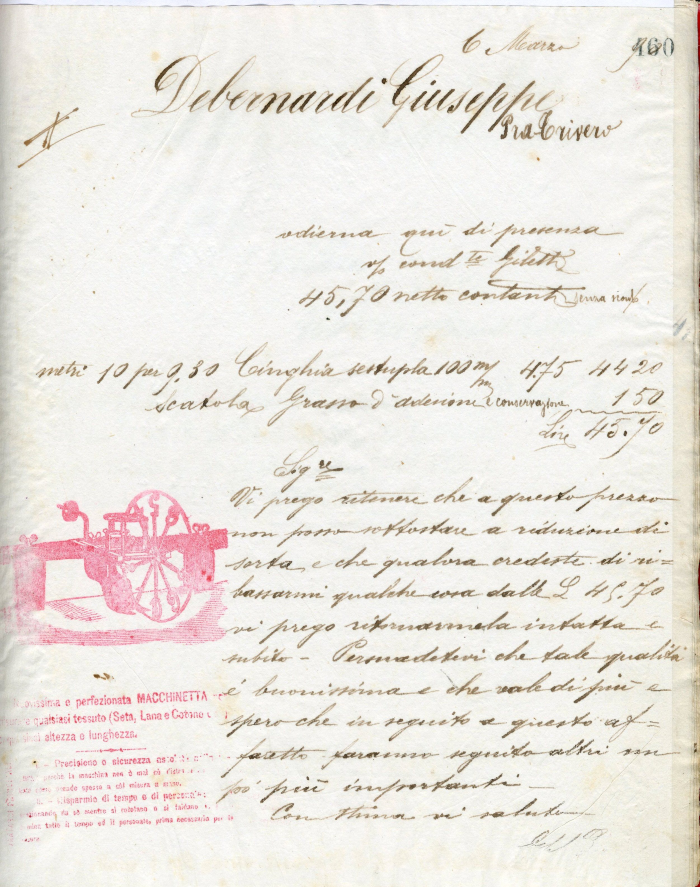 6 Marzo
460
Debernardi Giuseppe
Pra Trivero
odierna quì di presenza
v/ cond.te Giletti
45,70 netto contanti senza
metri 10 per 9.30 Cinghia sestupla 100 m/m 4.75 44 20
scatola Grasso d'adesione e conservazione 1 50
Lire 45.70
Sig.re
Vi prego ritenere che a questo prezzo
non posso sottostare a riduzione di
sorta e che qualora credeste di ri=
bassarmi qualche cosa dalle L 45.70
vi prego ritornarmela intatta e
subito - Persuadetevi che tale qualità
é buonissima e che vale di più e
spero che in seguito a questo af=
faretto faranno seguito altri un
pó più importanti -
Con stima vi saluto
e perfezionata MACCHINETTA
qualsiasi tessuto (Seta, Lana e Cotone
altezza o lunghezza.
- Precisione o sicurezza
la macchina non è mai
- Risparmio di tempo e di
tutto il tempo ed il personale, prima necessario per la